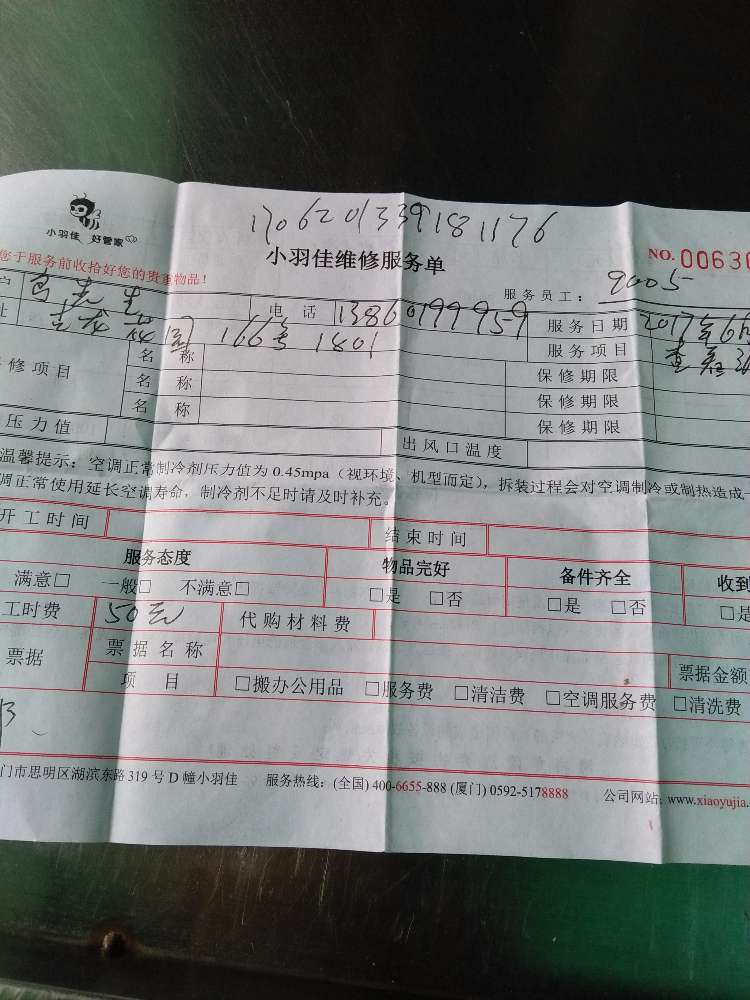 1706201339181176
小羽佳 好管家
您于服务前收拾好您的贵重物品！
小羽佳维修服务单
NO. 00630
服务员工： 9005
户 先生 电话 13860199959 服务日期 2017年6月
址 166号 1801 服务项目 查
修项目 名称 保修期限
名称 保修期限
名称 保修期限
压力值 出风口温度
温馨提示：空调正常制冷剂压力值为 0.45mpa（视环境、机型而定），拆装过程会对空调制冷或制热造成一
调正常使用延长空调寿命，制冷剂不足时请及时补充。
开工时间 结束时间
服务态度 物品完好 备件齐全 收到
满意□ 一般□ 不满意□ □是 □否 □是 □否 □是
工时费 50元 代购材料费
票据 票据名称 票据金额
项目 □搬办公用品 □服务费 □清洁费 □空调服务费 □清洗费
门市思明区湖滨东路 319 号 D 幢小羽佳 服务热线：(全国) 400-6655-888 (厦门) 0592-5178888 公司网站：www.xiaoyujia.